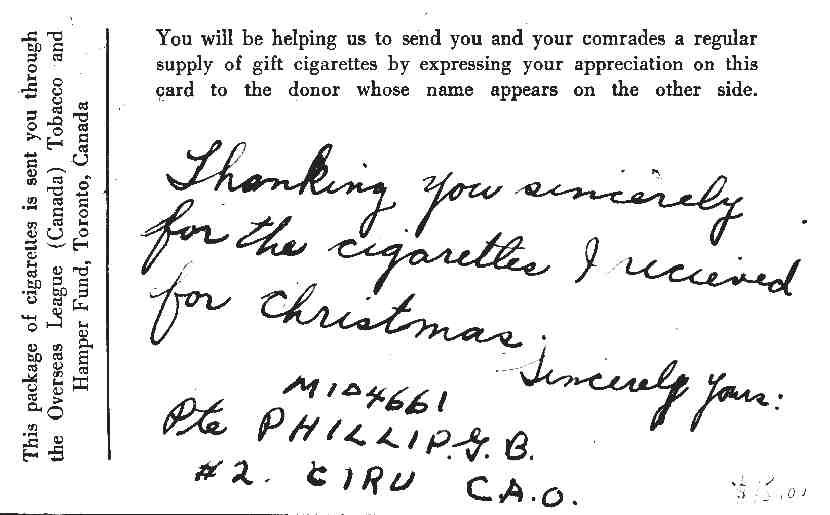 This package of cigarettes is sent you through
the Overseas League (Canada) Tobacco and
Hamper Fund, Toronto, Canada
You will be helping us to send you and your comrades a regular
supply of gift cigarettes by expressing your appreciation on this
card to the donor whose name appears on the other side.
Thanking you sincerely
for the cigarettes I recieved
for Christmas.
Sincerely Yours:
M104661
Pte PHILLIP. G. B.
#2. CIRU C.A.O.